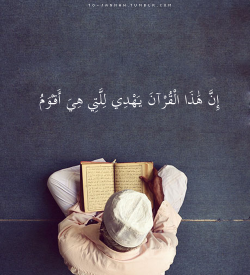 TO-JANNAH.TUMBLR.COM
إِنَّ هَٰذَا الْقُرْآنَ يَهْدِي لِلَّتِي هِيَ أَقْوَمُ